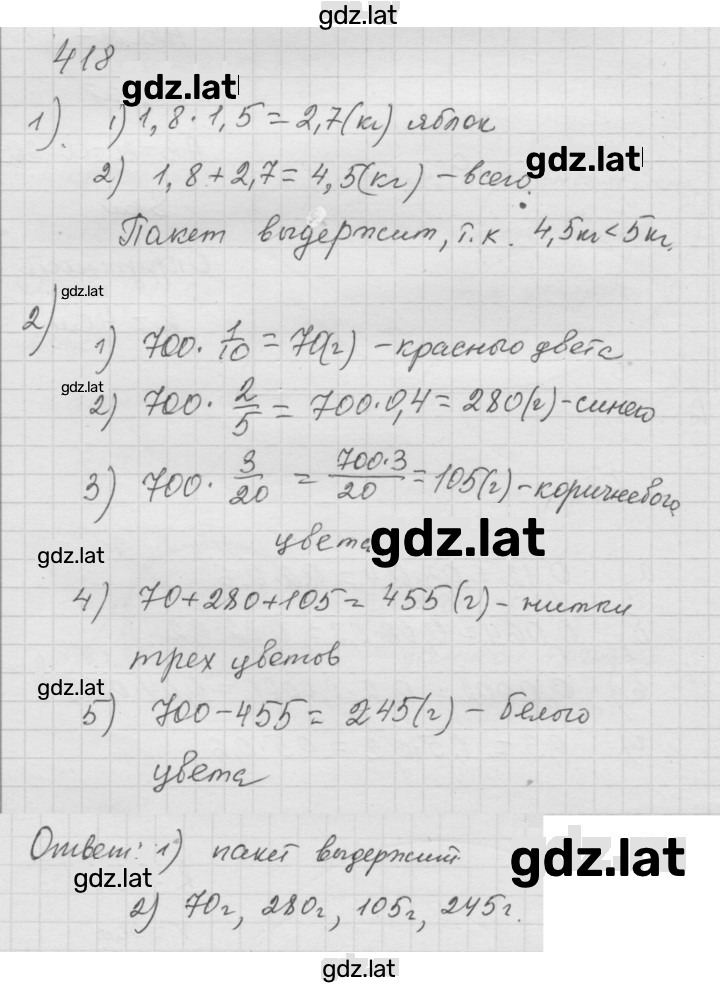 gdz.lat
418
gdz.lat
1). 1) 1,8·1,5=2,7(кг) яблок
2) 1,8+2,7=4,5(кг) – всего.
gdz.lat
Пакет выдержит, т.к. 4,5кг<5кг.
gdz.lat
2)
1) 700·1/10=70(г) – красного цвета
gdz.lat
2) 700·2/5=700·0,4=280(г) – синего
3) 700·3/20=700·3/20=105(г) – коричневого
цвета
gdz.lat
gdz.lat
4) 70+280+105=455(г) – нитки
трех цветов
gdz.lat
5) 700–455=245(г) – белого
цвета
Ответ: 1) пакет выдержит
gdz.lat
gdz.lat
2) 70г, 280г, 105г, 245г.
gdz.lat